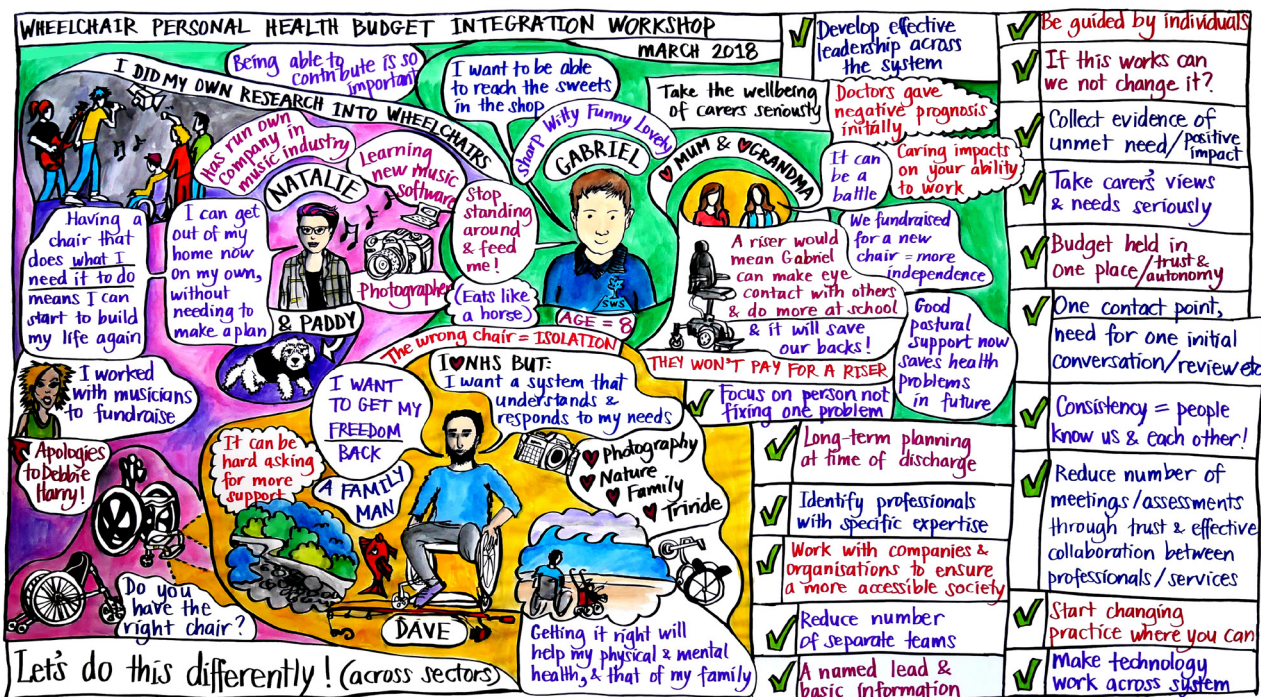 WHEELCHAIR PERSONAL HEALTH BUDGET INTEGRATION WORKSHOP
MARCH 2018
I DID MY OWN RESEARCH INTO WHEELCHAIRS
Being able to
contribute is so
important
Has run own
company in
music industry
NATALIE
Learning
new music
software
Photographer
& PADDY
Having a
chair that
does what I
need it to do
means I can
start to build
my life again
I can get
out of my
home now
on my own,
without
needing to
make a plan
I worked
with musicians
to fundraise
Apologies
to Debbie
Harry!
Do you
have the
right chair?
Let's do this differently! (across sectors)
I want to be able
to reach the sweets
in the shop
Sharp Witty Funny Lovely
GABRIEL
Stop
standing
around
& feed
me!
(Eats like
a horse)
SWS
AGE = 8
The wrong chair = ISOLATION
Take the wellbeing
of carers seriously
Doctors gave
negative prognosis
initially
MUM & GRANDMA
It can
be a
battle
Caring impacts
on your ability
to work
We fundraised
for a new
chair = more
independence
A riser would
mean Gabriel
can make eye
contact with others
& do more at school
& it will save
our backs!
THEY WON'T PAY FOR A RISER
Good
postural
support now
saves health
problems
in future
I WANT
TO GET MY
FREEDOM
BACK
I ♥ NHS BUT:
I want a system that
understands &
responds to my needs
It can be
hard asking
for more
support
A FAMILY
MAN
DAVE
Photography
Nature
Family
Trinde
Getting it right will
help my physical & mental
health, & that of my family
Develop effective
leadership across
the system
Focus on person not
fixing one problem
Long-term planning
at time of discharge
Identify professionals
with specific expertise
Work with companies &
organisations to ensure
a more accessible society
Reduce number
of separate teams
A named lead &
basic information
Be guided by individuals
If this works can
we not change it?
Collect evidence of
unmet need/positive
impact
Take carer's views
& needs seriously
Budget held in
one place/trust &
autonomy
One contact point,
need for one initial
conversation/review etc
Consistency = people
know us & each other!
Reduce number of
meetings/assessments
through trust & effective
collaboration between
professionals/services
Start changing
practice where you can
Make technology
work across system